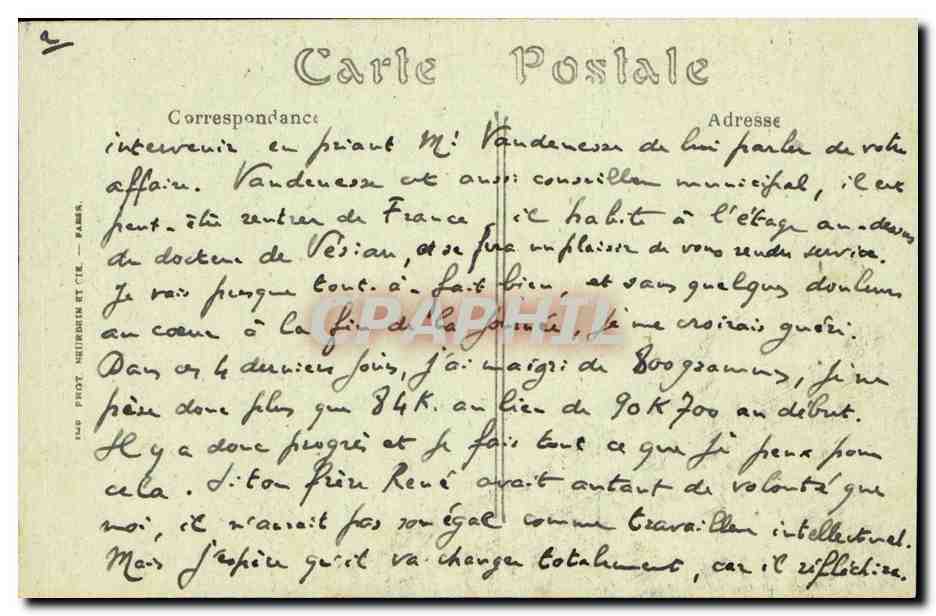 2
Carte Postale
Correspondance
Adresse
intervenir en priant Mr Vandenesse de lui parler de votre
affaire. Vandenesse est aussi conseiller municipal, il est
peut-être rentrer de France, il habite à l'étage au-dessus
du docteur de Vésian, et se fera un plaisir de vous rendre service.
Je vais presque tout-à-fait bien, et sans quelques douleurs
au cœur à la fin de la journée, je me croirais guéri.
Dans ces 4 derniers jours, j'ai maigri de 800 grammes, je ne
pèse donc plus que 84K. au lieu de 90K700 au début.
Il y a donc progrès et je fais tout ce que je peux pour
cela. Si ton frère René avait autant de volonté que
moi, il n'aurait pas son égal comme travailleur intellectuel.
Mais j'espère qu'il va changer totalement, car il réfléchira.
PHOT. NEURDEIN ET CIE. — PARIS.
CPAPHIL